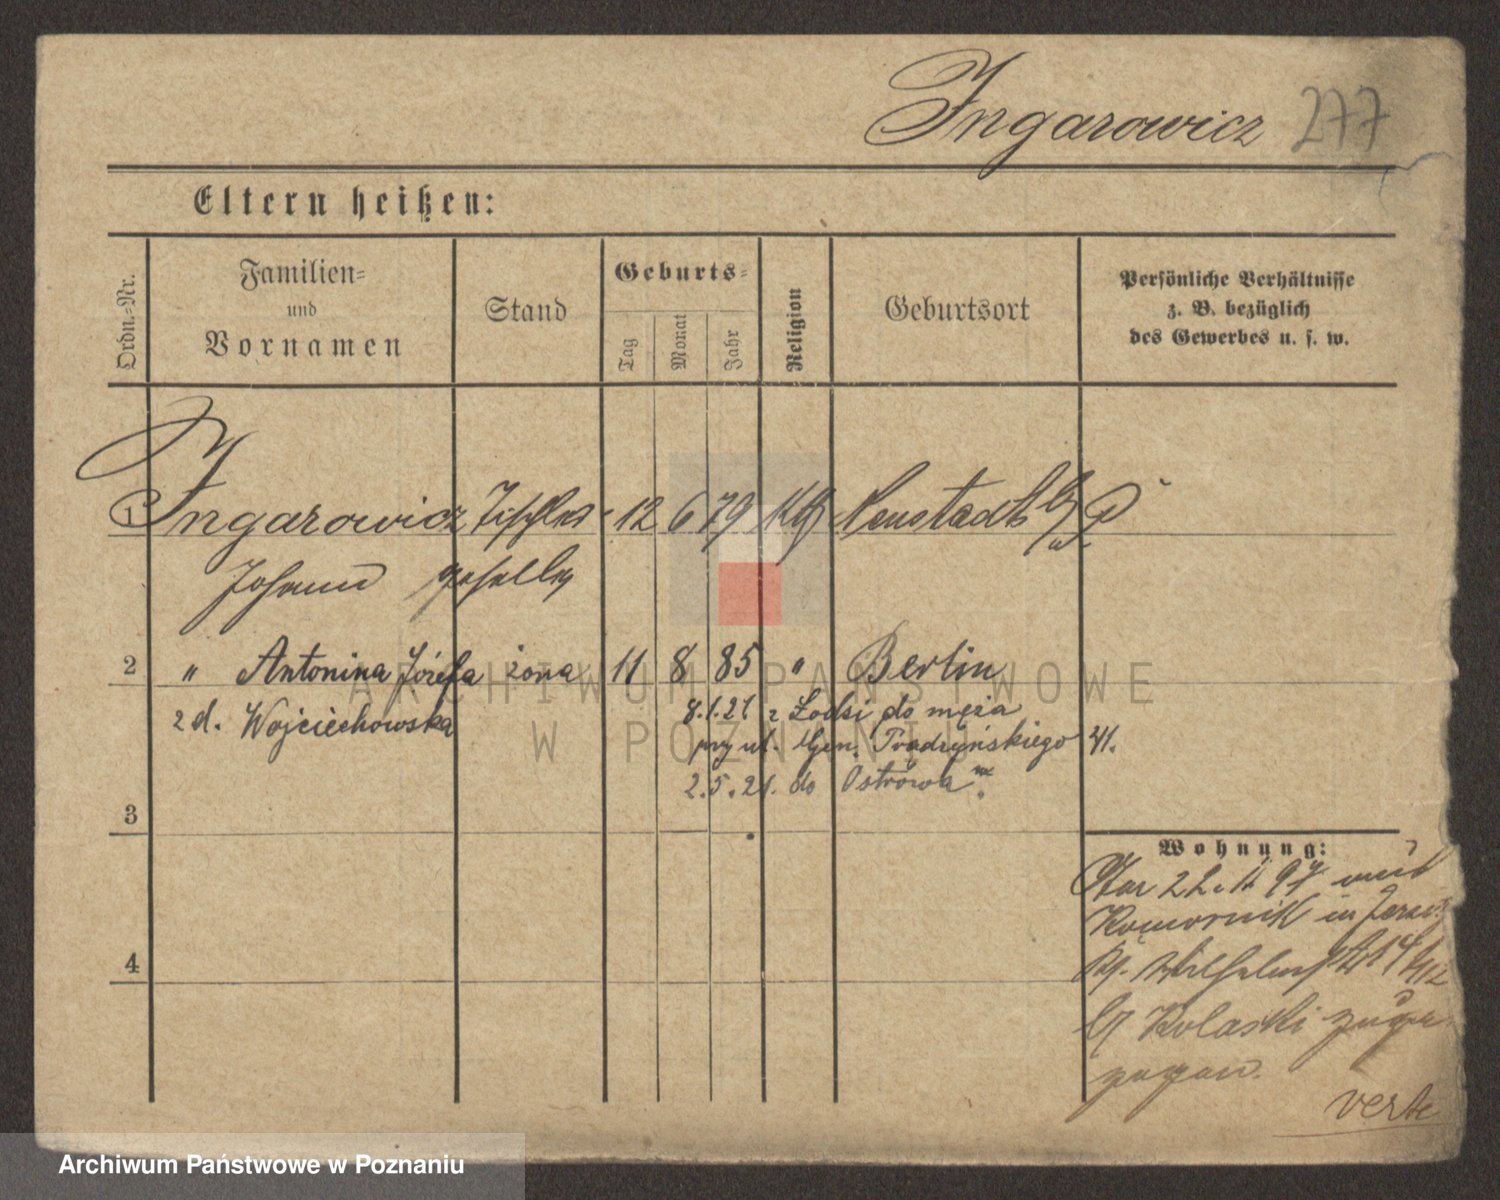 Ingarowicz 277
Eltern heißen:
Ordn.-Nr.
Familien-
und
Vornamen
Stand
Geburts-
Tag
Monat
Jahr
Religion
Geburtsort
Persönliche Verhältnisse
z. B. bezüglich
des Gewerbes u. s. w.
1 Ingarowicz Tischler- 12 6 79 Kth Neustadt b/P
Johann geselle
2 " Antonina Józefa żona 11 8 85 " Berlin
2 d. Wojciechowska
8.1.21 z Łodzi do męża
przy ul. Gen. Prądzyńskiego 41.
2.5.21. do Ostrowa
3
4
Wohnung:
22. 11 97
Komornik in Jersitz
Wilhelmstr 14
b/ Kolaski zuge
zogen.
verte
ARCHIWUM PAŃSTWOWE
W POZNANIU
Archiwum Państwowe w Poznaniu